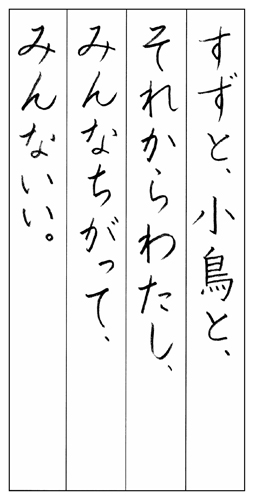 すずと、小鳥と、
それからわたし、
みんなちがって、
みんないい。